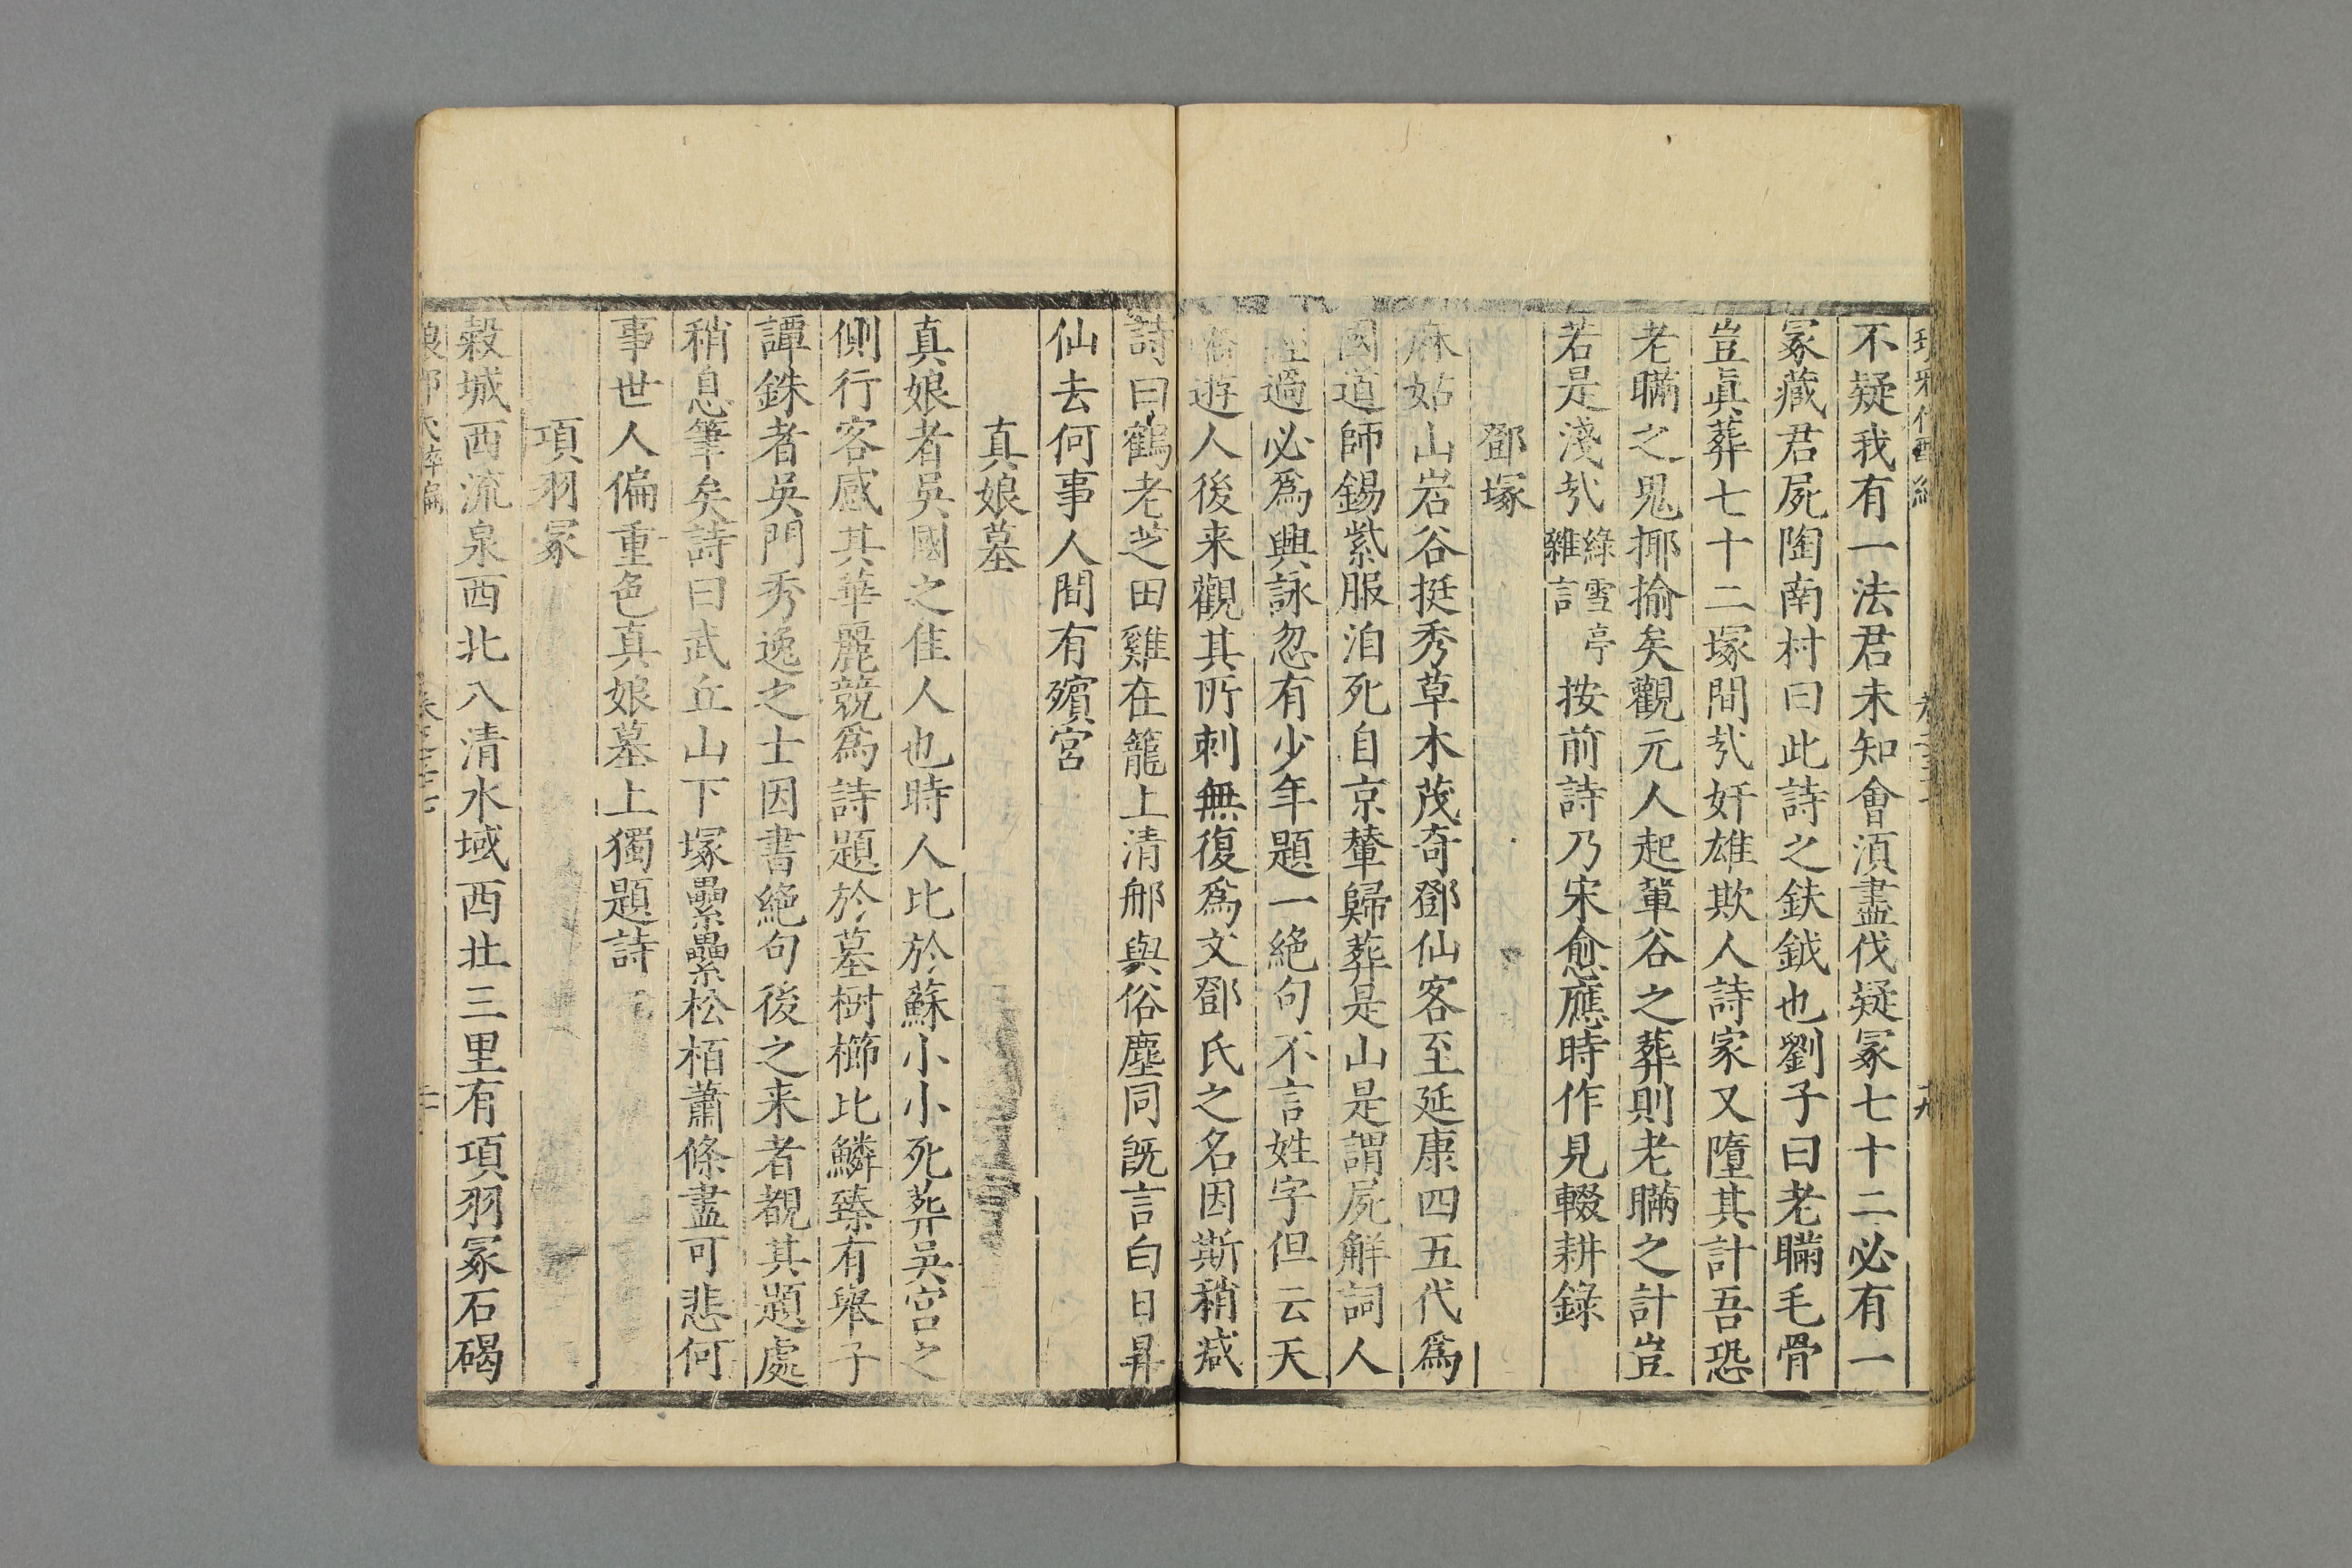 不疑我有一法君未知會湏盡伐疑冢七十二必有一
冢藏君屍陶南村曰此詩之鈇鉞也劉子曰老瞞毛骨
豈眞葬七十二塚間㢤奸雄欺人詩家又墮其計吾恐
老瞞之鬼揶揄矣觀元人起輦谷之葬則老瞞之計豈
若是淺㢤綠雪亭雜言 按前詩乃宋愈應時作見輟耕錄
鄧塚
麻姑山岩谷挺秀草木茂奇鄧仙客至延康四五代爲
國道師錫紫服洎死自京輦歸葬是山是謂屍解詞人
經過必爲興詠忽有少年題一絕句不言姓字但云天
嶠遊人後来觀其所刺無復爲文鄧氏之名因斯稍减
詩曰鶴老芝田雞在籠上清那與俗塵同旣言白日昇
仙去何事人間有殯宮
真娘墓
真娘者吳國之佳人也時人比於蘇小小死葬吳宮之
側行客感其華麗競爲詩題於墓樹櫛比鱗臻有舉子
譚銖者吳門秀逸之士因書絕句後之来者覩其題處
稍息筆矣詩曰武丘山下塚纍纍松栢蕭條盡可悲何
事世人偏重色真娘墓上獨題詩
項羽冢
榖城西流泉西北八清水域西北三里有項羽冢石碣